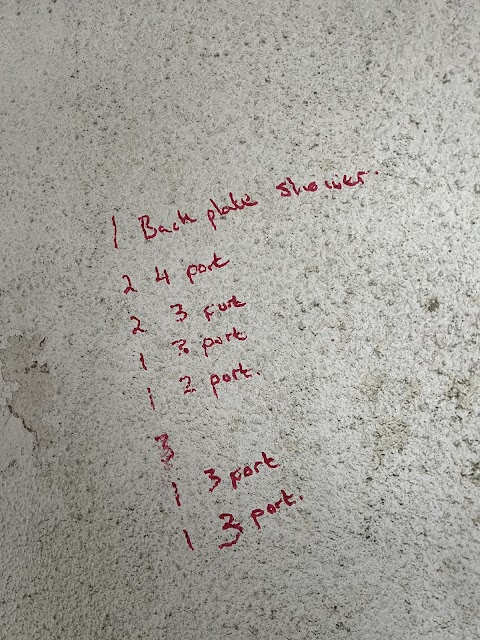 1 Back plate shower.
2 4 port
2 3 port
1 3 port
1 2 port.
3
1 3 port
1 3 port.